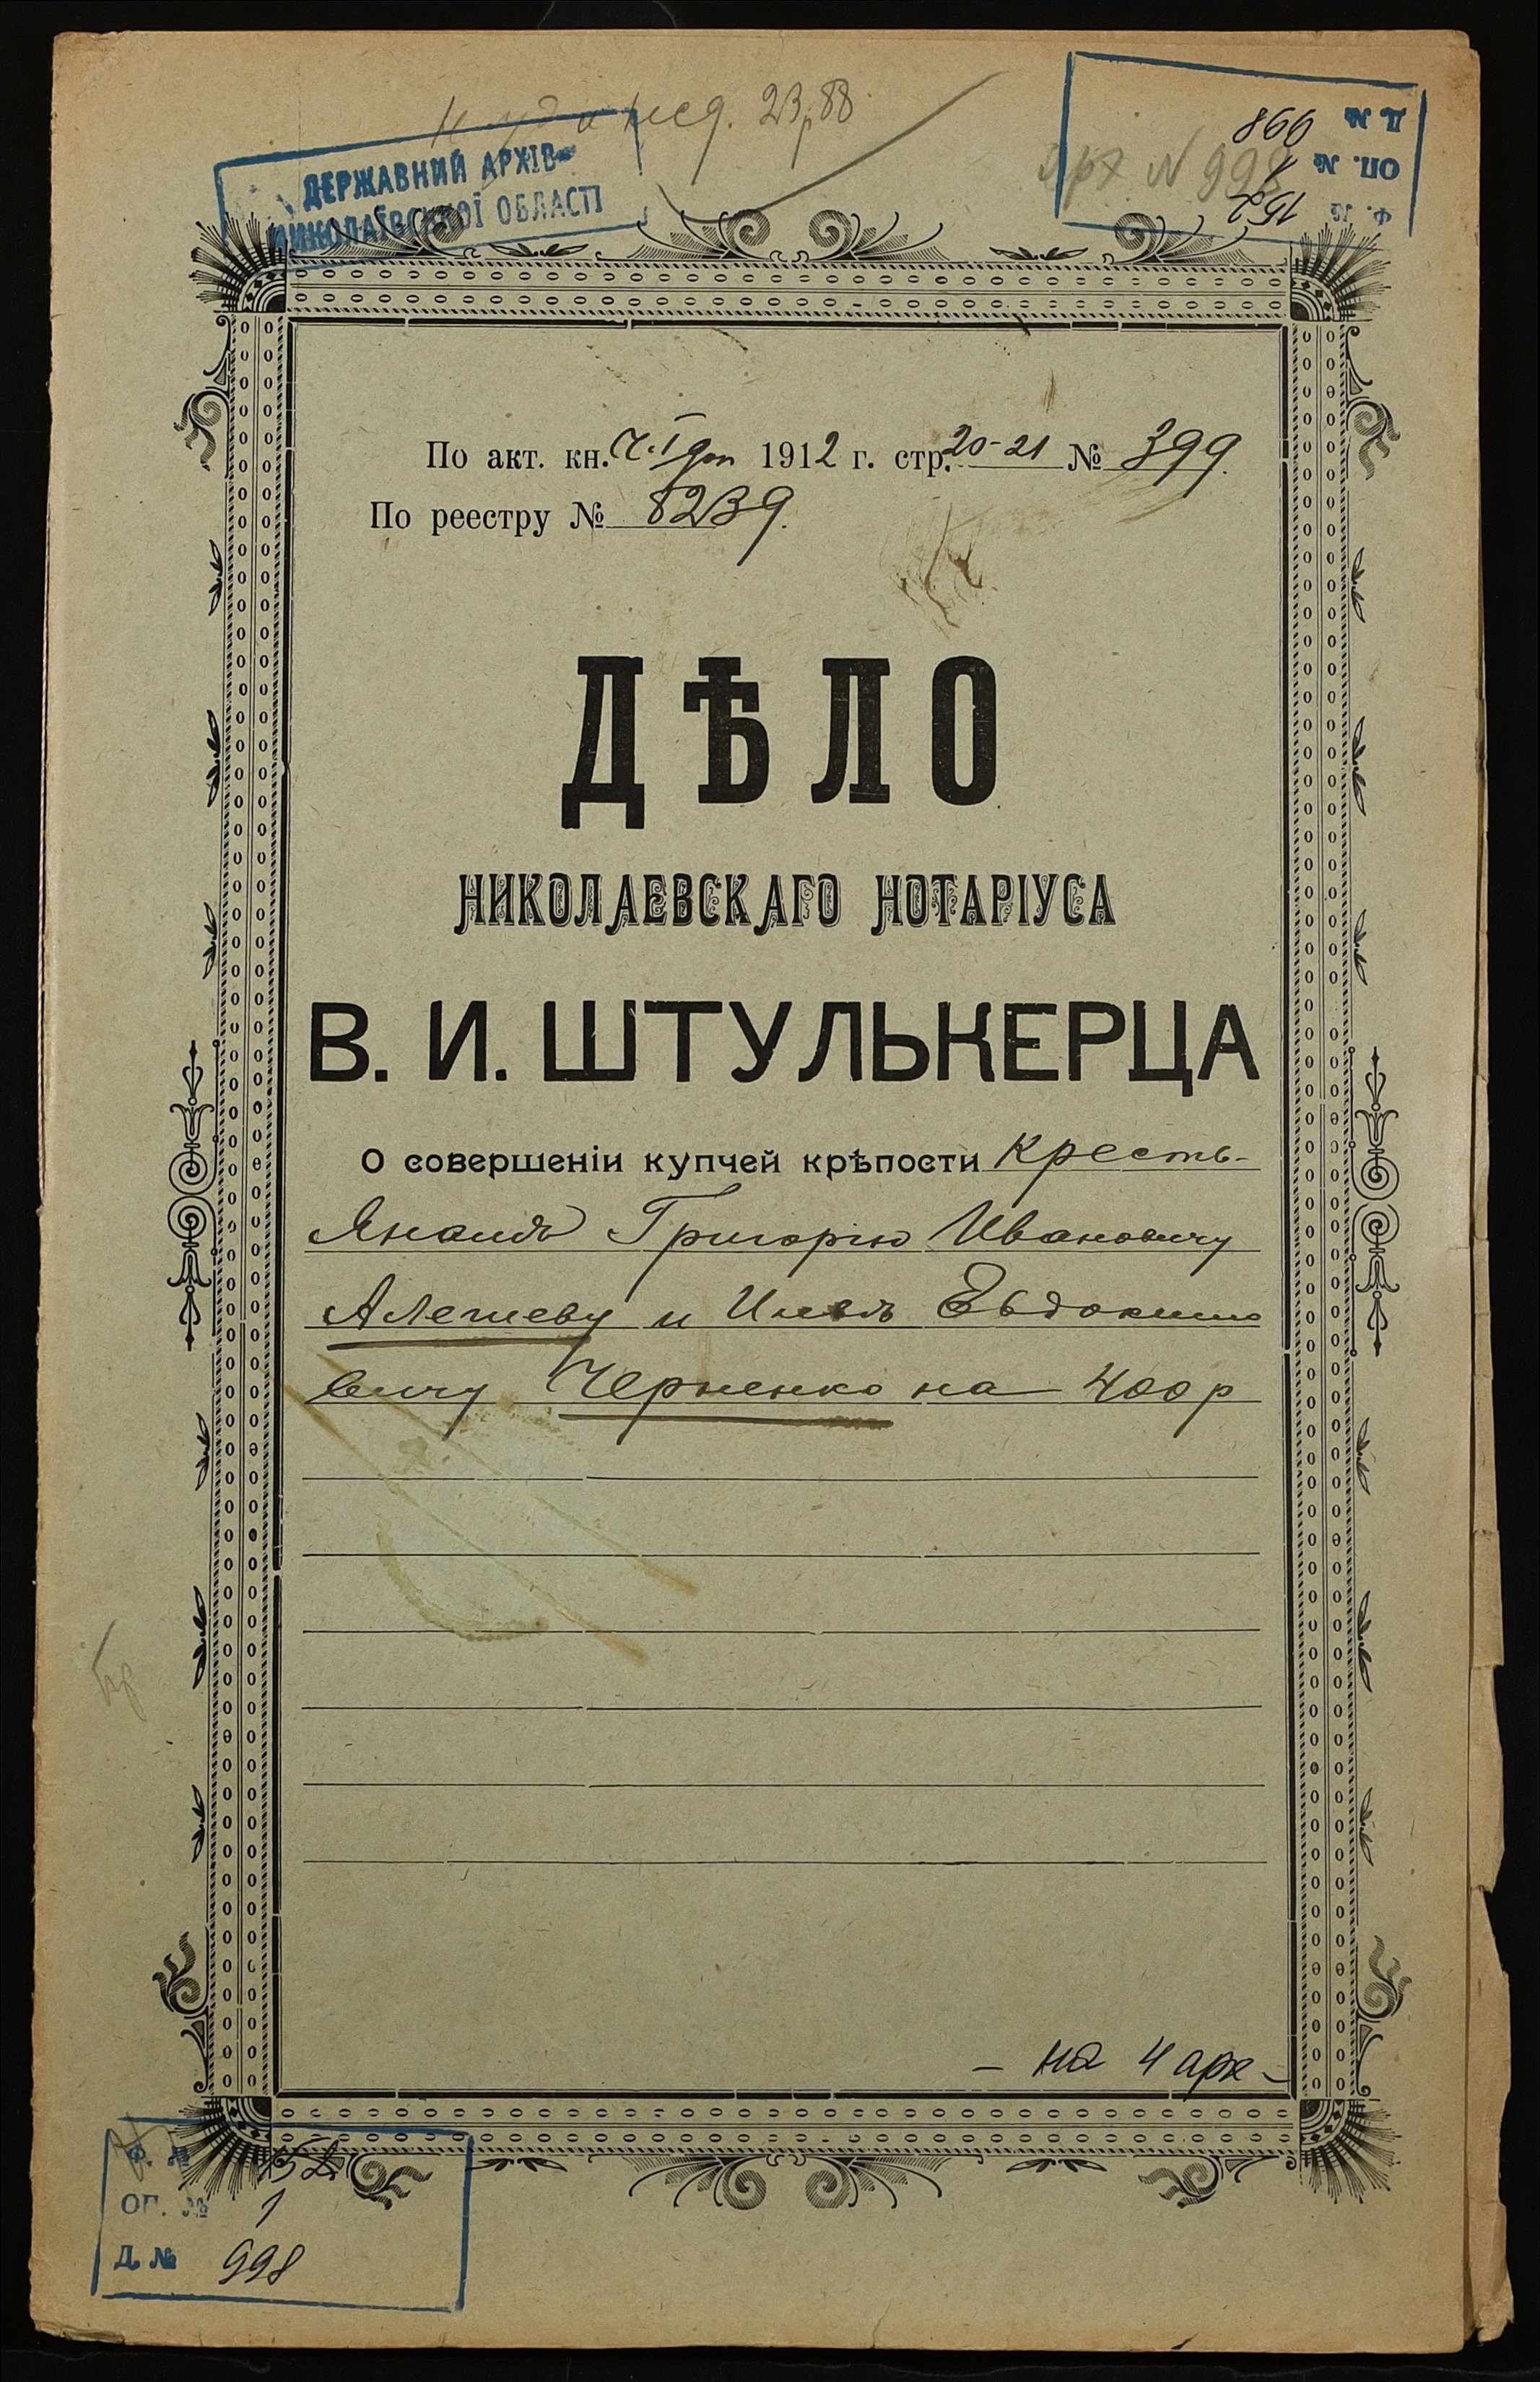 23, 88
ДЕРЖАВНИЙ АРХІВ
МИКОЛАЇВСЬКОЇ ОБЛАСТІ
Ф. № 152
ОП. № 1
Д. № 998
арх N 998
По акт. кн. Ч. I доп 1912 г. стр. 20-21 № 399.
По реестру № 8239.
ДѢЛО
НИКОЛАЕВСКАГО НОТАРІУСА
В. И. ШТУЛЬКЕРЦА
О совершеніи купчей крѣпости кресть-
янамъ Григорію Ивановичу
Алешеву и Евдокимо
вичу Черненко на 400 р
– на 4 арк –
Ф. № 152
ОП. № 1
Д. № 998